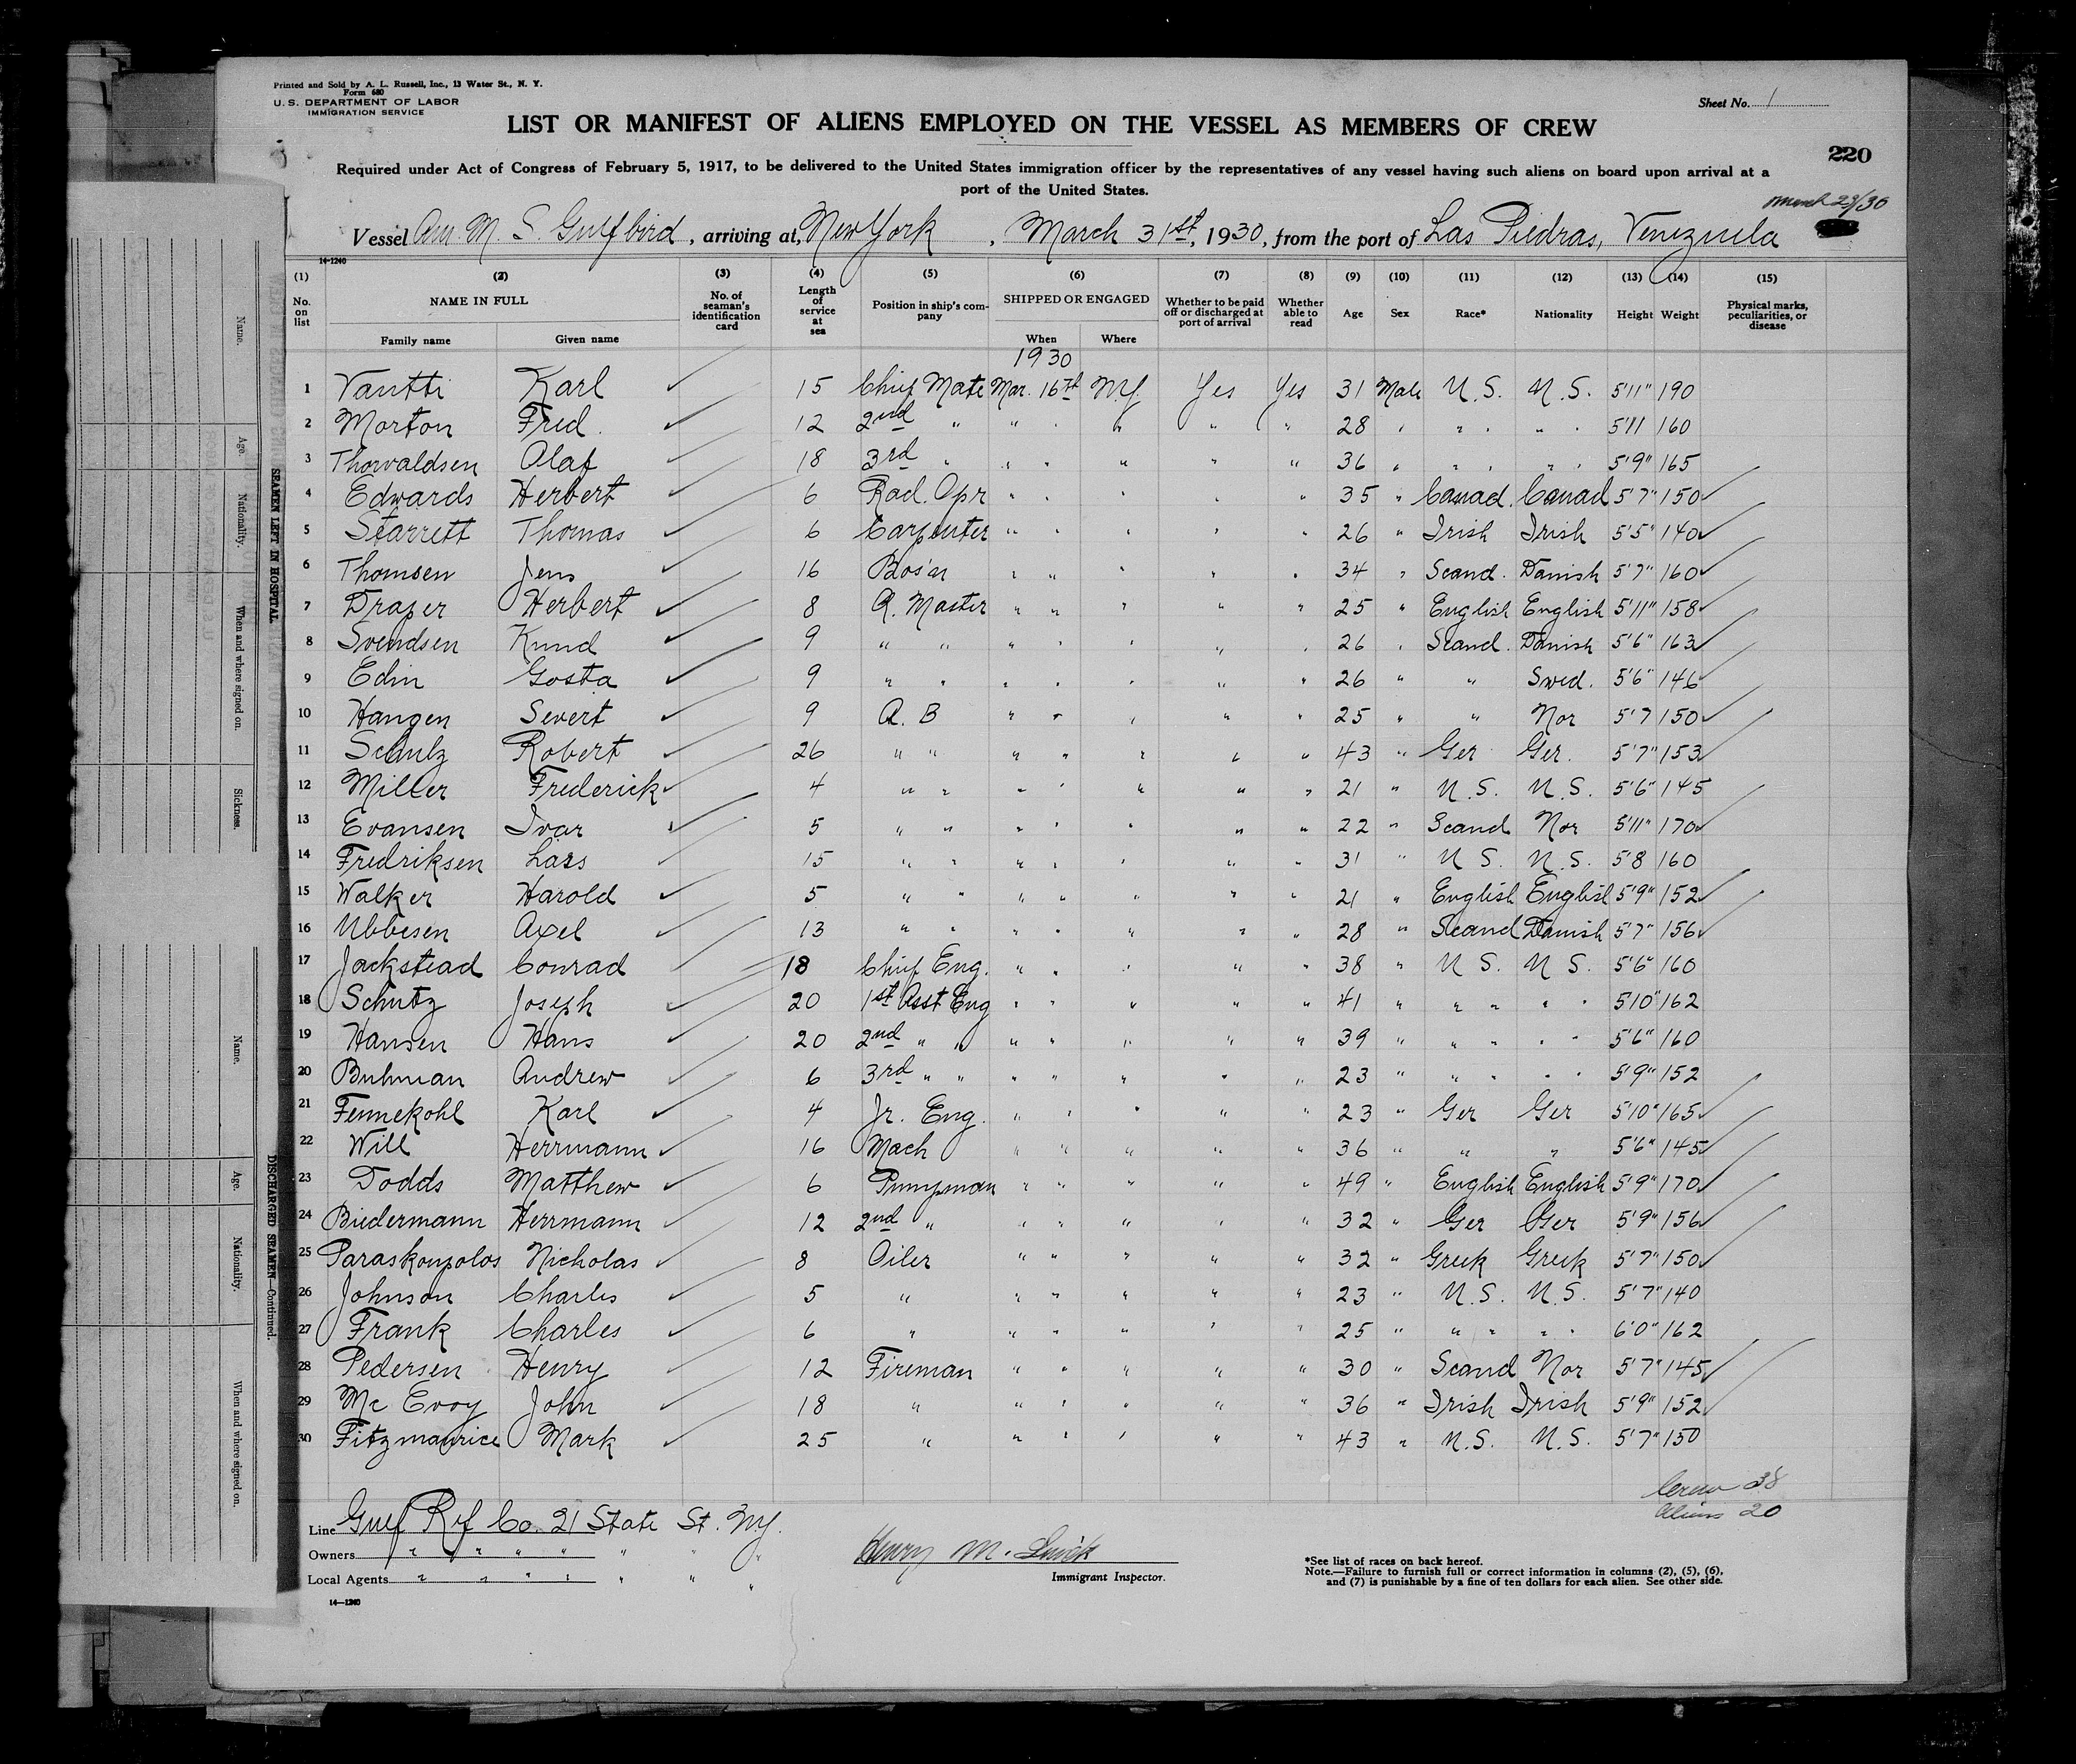 Printed and Sold by A. L. Russell, Inc., 13 Water St., N. Y.
Form 680
U. S. DEPARTMENT OF LABOR
IMMIGRATION SERVICE
Sheet No. 1
LIST OR MANIFEST OF ALIENS EMPLOYED ON THE VESSEL AS MEMBERS OF CREW
220
Required under Act of Congress of February 5, 1917, to be delivered to the United States immigration officer by the representatives of any vessel having such aliens on board upon arrival at a
port of the United States.
March 29/30
Vessel Am. M. S. Gulfbird, arriving at, New York, March 31st, 1930, from the port of Las Piedras, Venezuela
14-1240
(1) (2) (3) (4) (5) (6) (7) (8) (9) (10) (11) (12) (13) (14) (15)
No. on list NAME IN FULL Family name Given name No. of seaman's identification card Length of service at sea Position in ship's company SHIPPED OR ENGAGED When Where Whether to be paid off or discharged at port of arrival Whether able to read Age Sex Race* Nationality Height Weight Physical marks, peculiarities, or disease
1930
1 Vantti Karl 15 Chief Mate Mar. 16th N.Y. Yes Yes 31 Male U.S. U.S. 5'11" 190
2 Morton Fred 12 2nd " " " " " " 28 " " " " " 5'11 160
3 Thorvaldsen Olaf 18 3rd " " " " " " 36 " " " " " 5'9" 165
4 Edwards Herbert 6 Rad. Opr " " " " " 35 " Canad. Canad 5'7" 150
5 Starrett Thomas 6 Carpenter " " " " " 26 " Irish Irish 5'5" 140
6 Thomsen Jens 16 Bos'n " " " " " 34 " Scand. Danish 5'7" 160
7 Draper Herbert 8 Q. Master " " " " " 25 " English English 5'11" 158
8 Svendsen Knud 9 " " " " " " " 26 " Scand. Danish 5'6" 163
9 Edin Gosta 9 " " " " " " " 26 " " Swed. 5'6" 146
10 Hangen Severt 9 A. B " " " " " 25 " " Nor 5'7 150
11 Schulz Robert 26 " " " " " " " 43 " Ger Ger. 5'7" 153
12 Miller Frederick 4 " " " " " " " 21 " U.S. U.S. 5'6" 145
13 Evansen Ivar 5 " " " " " " " 22 " Scand Nor 5'11" 170
14 Fredriksen Lars 15 " " " " " " " 31 " U.S. U.S. 5'8 160
15 Walker Harold 5 " " " " " " " 21 " English English 5'9" 152
16 Ubbesen Axel 13 " " " " " " " 28 " Scand Danish 5'7" 156
17 Jackstead Conrad 18 Chief Eng. " " " " " 38 " U S. U S. 5'6" 160
18 Schutz Joseph 20 1st Asst Eng " " " " " 41 " " " " " 5'10" 162
19 Hansen Hans 20 2nd " " " " " " " 39 " " " " " 5'6" 160
20 Buhman Andrew 6 3rd " " " " " " " 23 " " " " " 5'9" 152
21 Fennekohl Karl 4 Jr. Eng. " " " " " 23 " Ger Ger 5'10" 165
22 Will Herrmann 16 Mach " " " " " 36 " " " 5'6" 145
23 Dodds Matthew 6 Pumpman " " " " " 49 " English English 5'9" 170
24 Biedermann Herrmann 12 2nd " " " " " " 32 " Ger Ger 5'9" 156
25 Paraskoupolos Nicholas 8 Oiler " " " " " 32 " Greek Greek 5'7" 150
26 Johnson Charles 5 " " " " " " 23 " U.S. U.S. 5'7" 140
27 Frank Charles 6 " " " " " " 25 " " " " " 6'0" 162
28 Pedersen Henry 12 Fireman " " " " " 30 " Scand Nor 5'7" 145
29 Mc Evoy John 18 " " " " " " 36 " Irish Irish 5'9" 152
30 Fitzmaurice Mark 25 " " " " " " 43 " U.S. U.S. 5'7" 150
Crew 38
Aliens 20
Line Gulf Ref Co. 21 State St. N.Y.
Owners " " " " " " "
Local Agents " " " " " " "
14—1240
Henry M.
Immigrant Inspector.
*See list of races on back hereof.
Note.—Failure to furnish full or correct information in columns (2), (5), (6),
and (7) is punishable by a fine of ten dollars for each alien. See other side.
SEAMEN LEFT IN HOSPITAL
Name.
Age.
Nationality.
When and where signed on.
Sickness.
DISCHARGED SEAMEN—Continued.
Name.
Age.
Nationality.
When and where signed on.